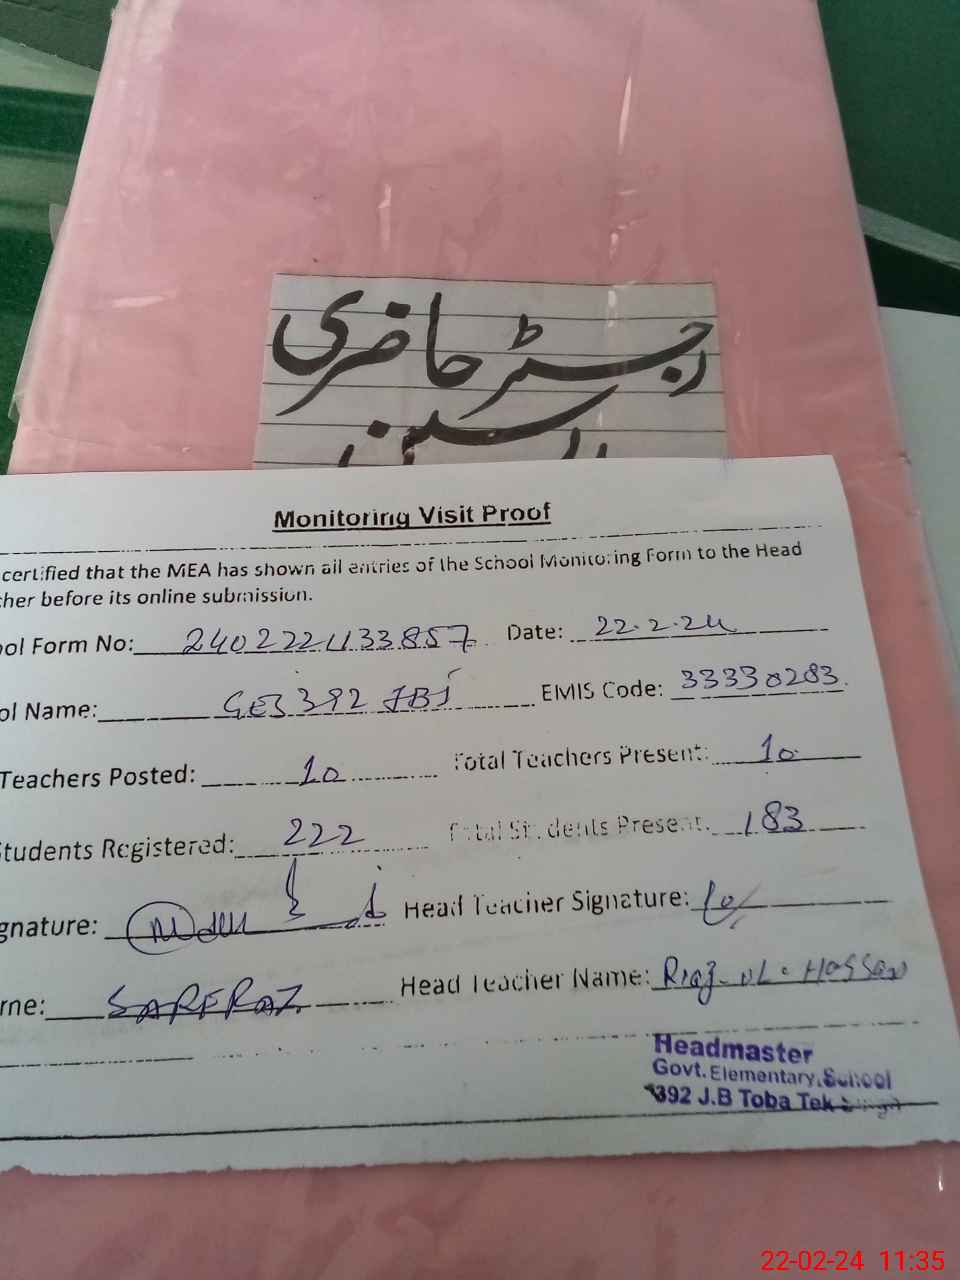 رجسٹر حاضری
Monitoring Visit Proof
certified that the MEA has shown all entries of the School Monitoring Form to the Head
cher before its online submission.
ool Form No: 2402221133857 Date: 22.2.24
ol Name: GES 392 JB EMIS Code: 33330283
Teachers Posted: 10 Total Teachers Present: 10
Students Registered: 222 Total Students Present: 183
gnature: Head Teacher Signature:
me: SARFRAZ Head Teacher Name: Riaz-ul-Hassan
Headmaster
Govt. Elementary School
392 J.B Toba Tek Singh
22-02-24 11:35